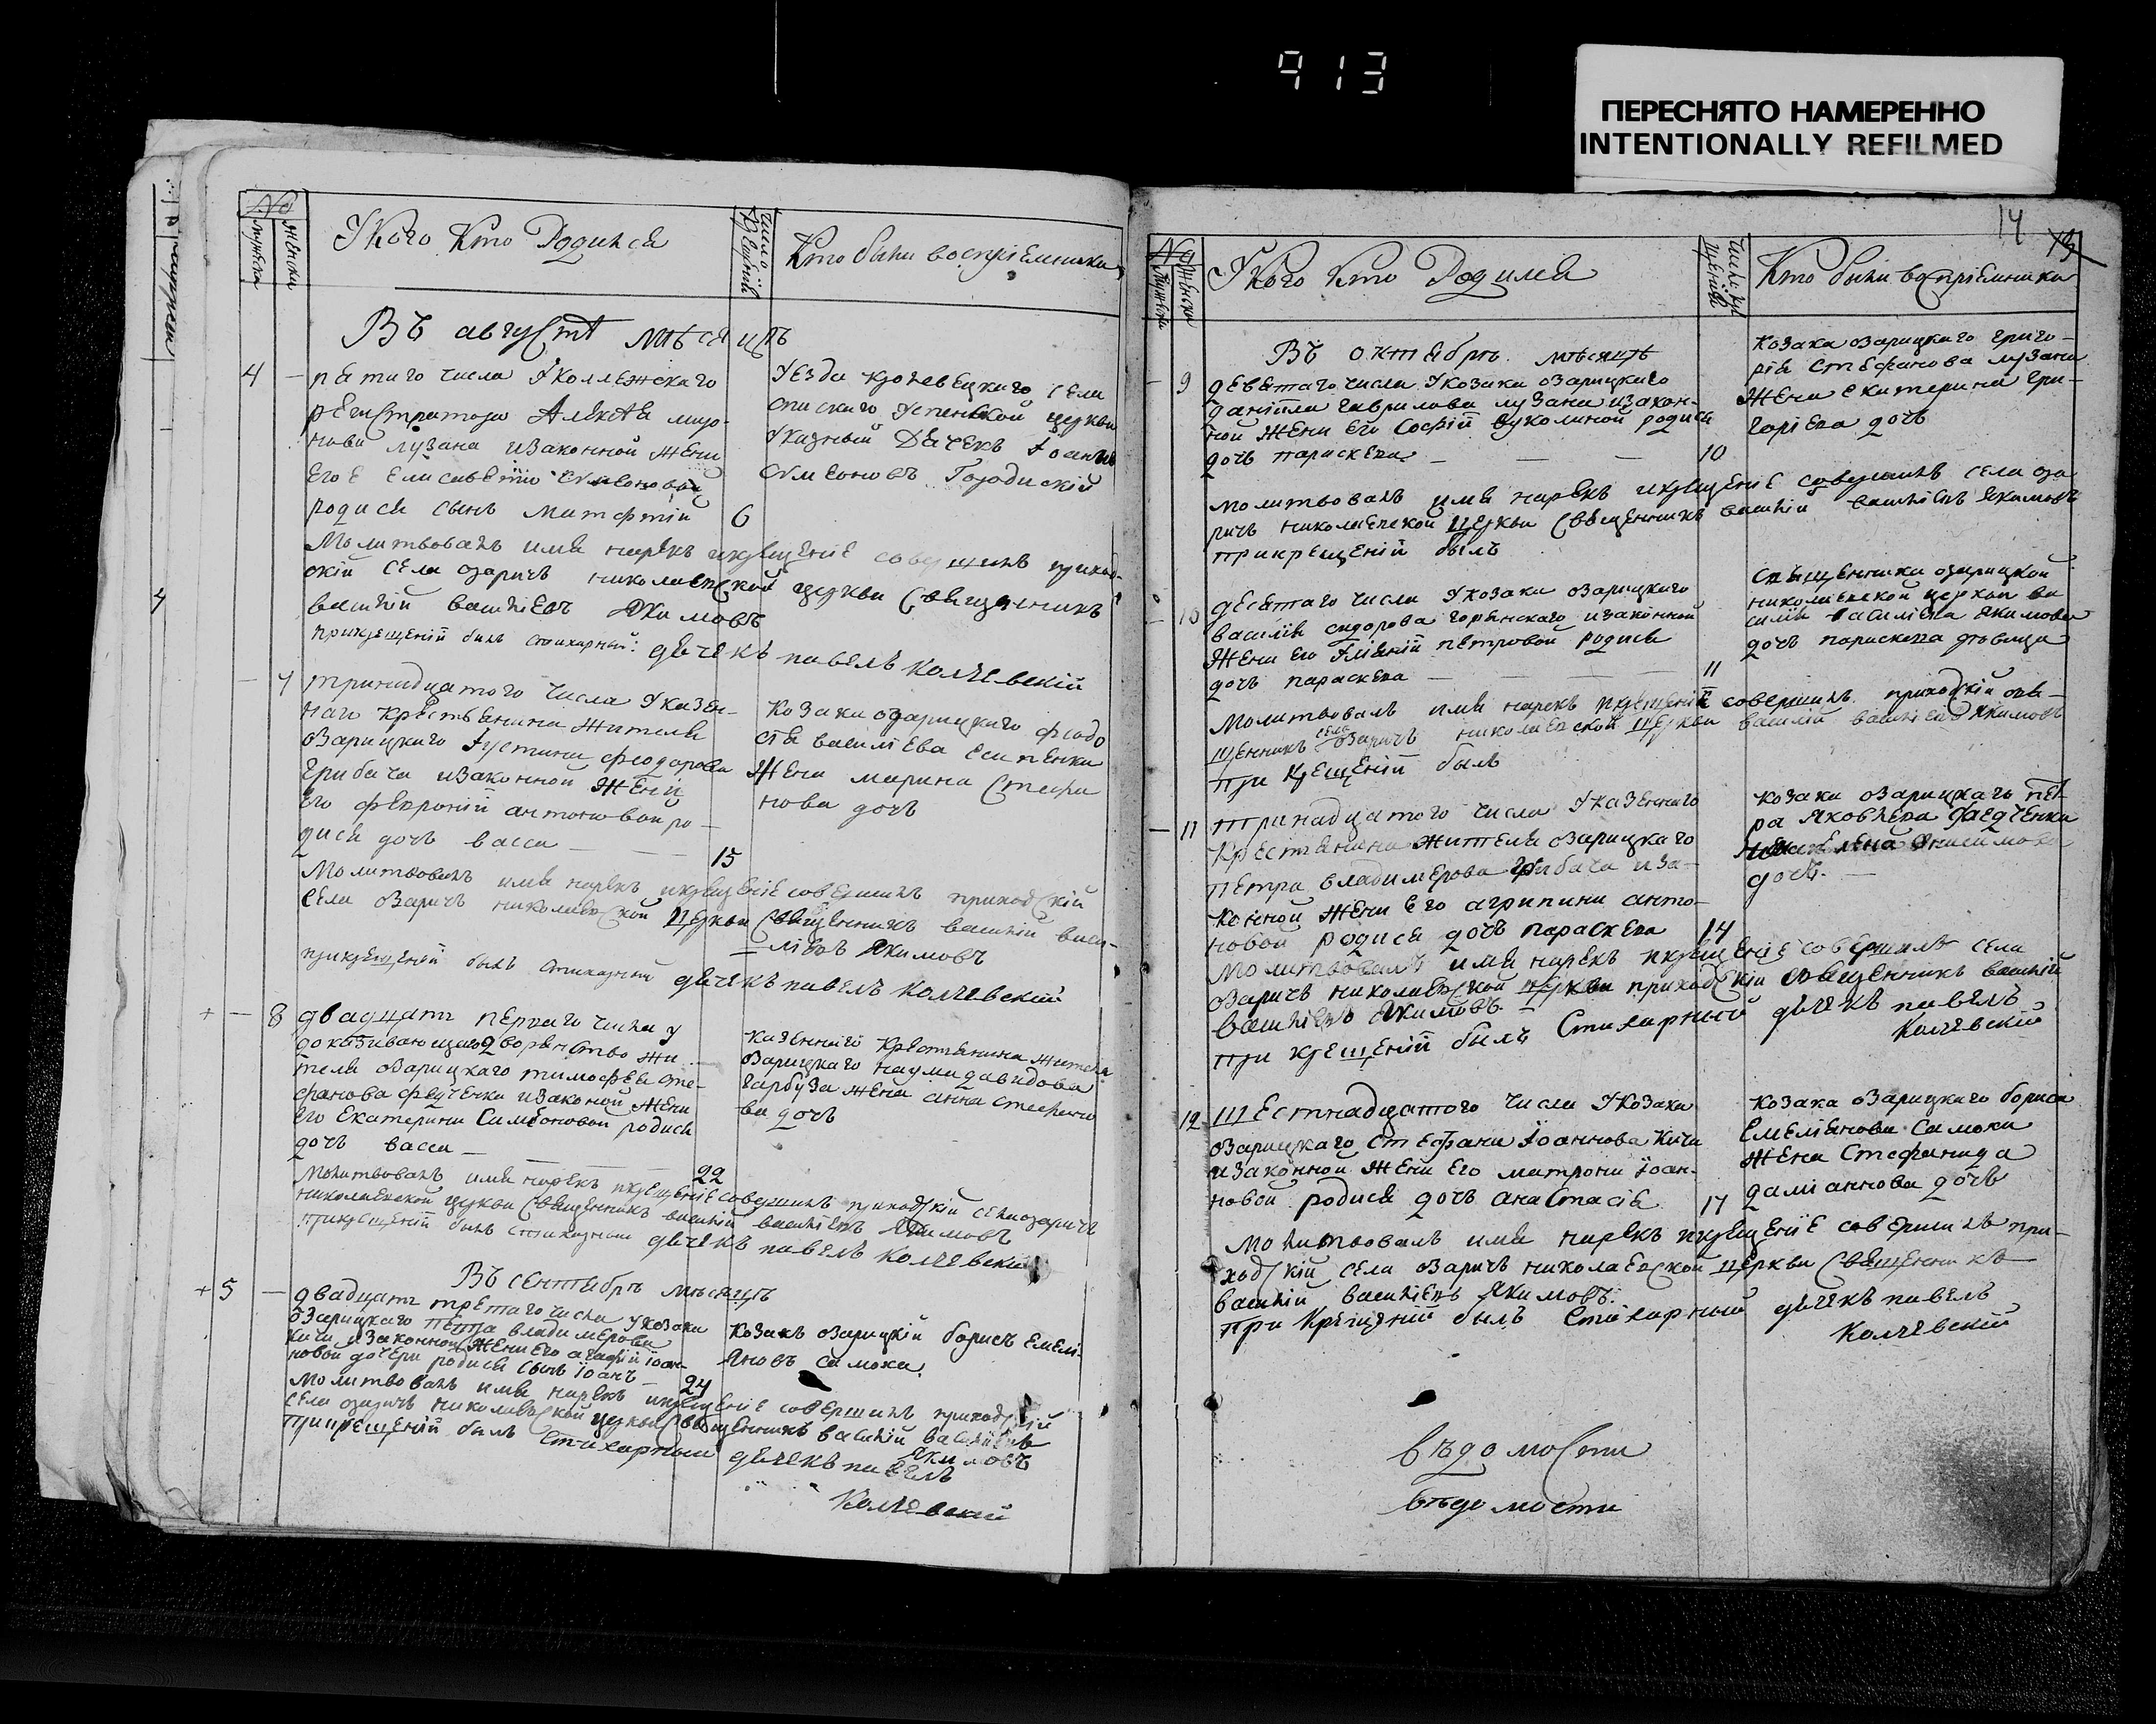 913
ПЕРЕСНЯТО НАМЕРЕННО
INTENTIONALLY REFILMED
№
мужеска
женска
У кого кто Родился
число крещенія
Кто были воспріемники
Въ августѣ мѣсяцѣ
4
пятаго числа У Коллежскаго
регистратора Алексѣя миро-
нова лузана изаконной жени
его Елисаветы Симеоновой
родися сынъ митофтій
6
Уезда кролевецкаго села
спаскаго Успенской церкви
Указный Дячекъ Іоаннъ
Симеоновъ Городискій
Молитвовалъ имя нарекъ икрещеніе совершилъ приход-
скій села озаричъ николаевской церкви священникъ
василій василіевъ Якимовъ
прикрещеніи былъ стихарный дячекъ павелъ колчевскій
7
тринадцатого числа У казен-
наго крестьянина жителя
озарицкаго Іустина феодорова
грибача изаконной жени
его февроніи антоновой ро-
дися дочъ васса
15
Козака озарицкаго феодо
сія василіева есипенка
жена марина Стефа
нова дочъ
Молитвовалъ имя нарекъ икрещеніе совершилъ приходскій
села озаричъ николаевской церкви священникъ василій васи-
ліевъ Якимовъ
прикрещеніи былъ стихарный дячекъ павелъ колчевскій
8
двадцать перваго числа у
доказивающаго дворянство жи-
теля озарицкаго тимофея сте-
фанова федченка изаконой жени
его Екатерини Симеоновой родися
дочъ васса
22
казенного крестьянина жителя
озарицкаго наума давидова
гарбуза жена анна стефано
ва дочъ
Молитвовалъ имя нарекъ икрещеніе совершилъ приходскій села озаричъ
николаевской церкви священникъ василій василіевъ Якимовъ
прикрещеніи былъ стихарный дячекъ павелъ колчевскій
Въ сентябрѣ мѣсяцѣ
5
двадцать третаго числа У козака
озарицкаго петра владимерова
кичи изаконной жени его агафіи іоан-
новой дочери родися сынъ іоанъ
24
Козакъ озарицкій борисъ емелі-
яновъ самоха
Молитвовалъ имя нарекъ икрещеніе совершилъ приходскій
села озаричъ николаевской церкви священникъ василій василіевъ
Якимовъ
прикрещеніи былъ стихарный дячекъ павелъ
Колчевскій
14
13
№
мужеска
женска
У кого кто Родился
число крещенія
Кто были воспріемники
Въ октябрѣ мѣсяцѣ
9
девятаго числа У козака озарицкаго
даніила гаврилова лузана изакон-
ной жени его Софіи вуколиной родися
дочъ параскева
10
Козака озарицкаго григо-
рія Стефанова лузана
жена екатерина гри-
горіева дочъ
молитвовалъ имя нарекъ икрещеніе совершилъ села оза
ричъ николаевской церкви священникъ василій василіевъ Якимовъ
прикрещеніи былъ
10
десятаго числа У козака озарицкаго
василія сидорова горянскаго изаконной
жени его Уліяніи петровой родися
дочъ параскева
11
священника озарицкой
николаевской церкви ва
силія василіева якимова
дочъ параскева дѣвица
Молитвовалъ имя нарекъ икрещеніе совершилъ приходскій свя-
щенникъ села озаричъ николаевской церкви василій василіевъ Якимовъ
при крещеніи былъ
11
тринадцатого числа У казенного
крестьянина жителя озарицкаго
петра владимерова грибача иза-
конной жени его агрипини анто-
новой родися дочъ параскева
14
козака озарицкаго пет-
ра Яковлева федченка
жена елена Онисимова
дочъ
Молитвовалъ имя нарекъ икрещеніе совершилъ села
озаричъ николаевской церкви приходскій священникъ василій
василіевъ Якимовъ
при крещеніи былъ Стихарный дячекъ павелъ
Колчевскій
12
Шестнадцатого числа У козака
озарицкаго Стефана Іоаннова кичи
изаконной жени его матрони іоан-
новой родися дочъ анастасія
17
Козака озарицкаго бориса
Емеліянова самохи
жена Стефанида
даміаннова дочъ
Молитвовалъ имя нарекъ икрещеніе совершилъ при-
ходскій села озаричъ николаевской церкви священникъ
василій василіевъ Якимовъ
при крещеніи былъ Стихарный дячекъ павелъ
Колчевскій
вѣдомости
вѣдомости